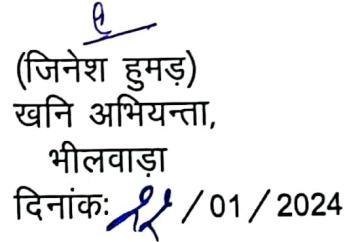 (जिनेश हुमड़)
खनि अभियन्ता,
भीलवाड़ा
दिनांक: / 01 / 2024